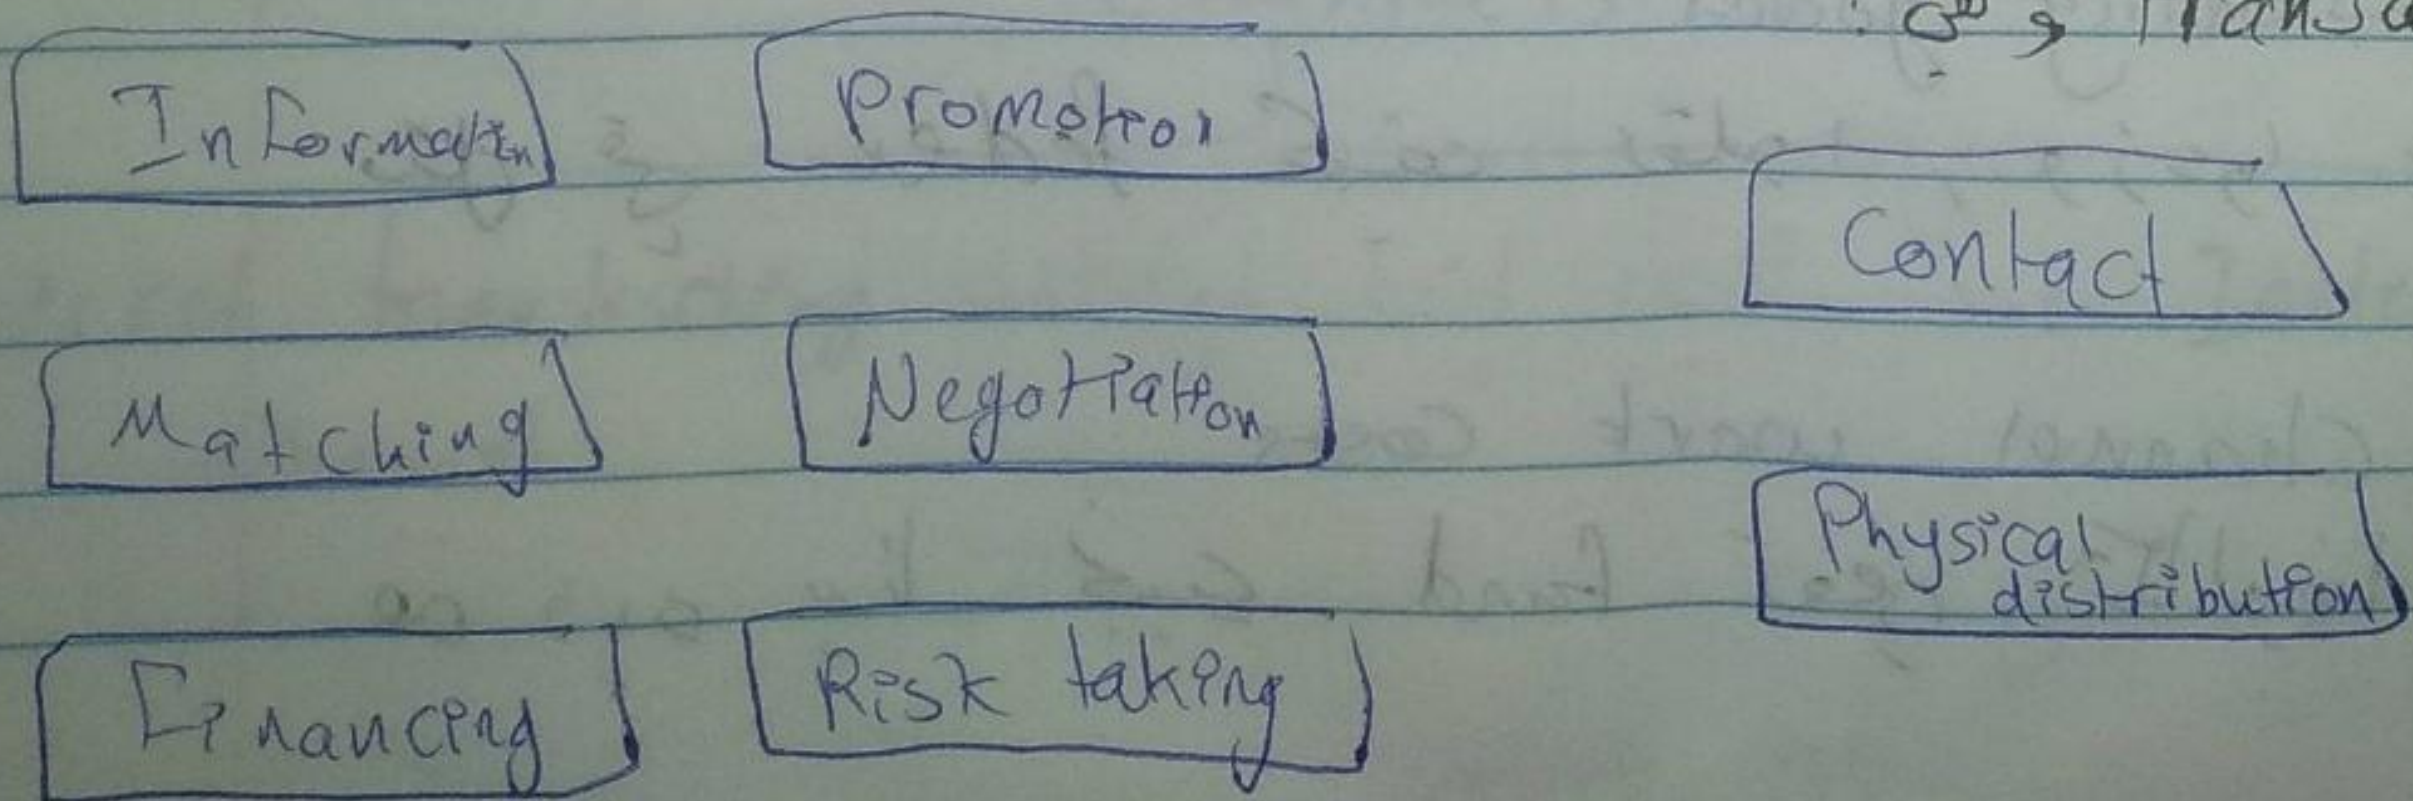 Information
Promotion
Contact
Matching
Negotiation
Physical
distribution
Financing
Risk taking